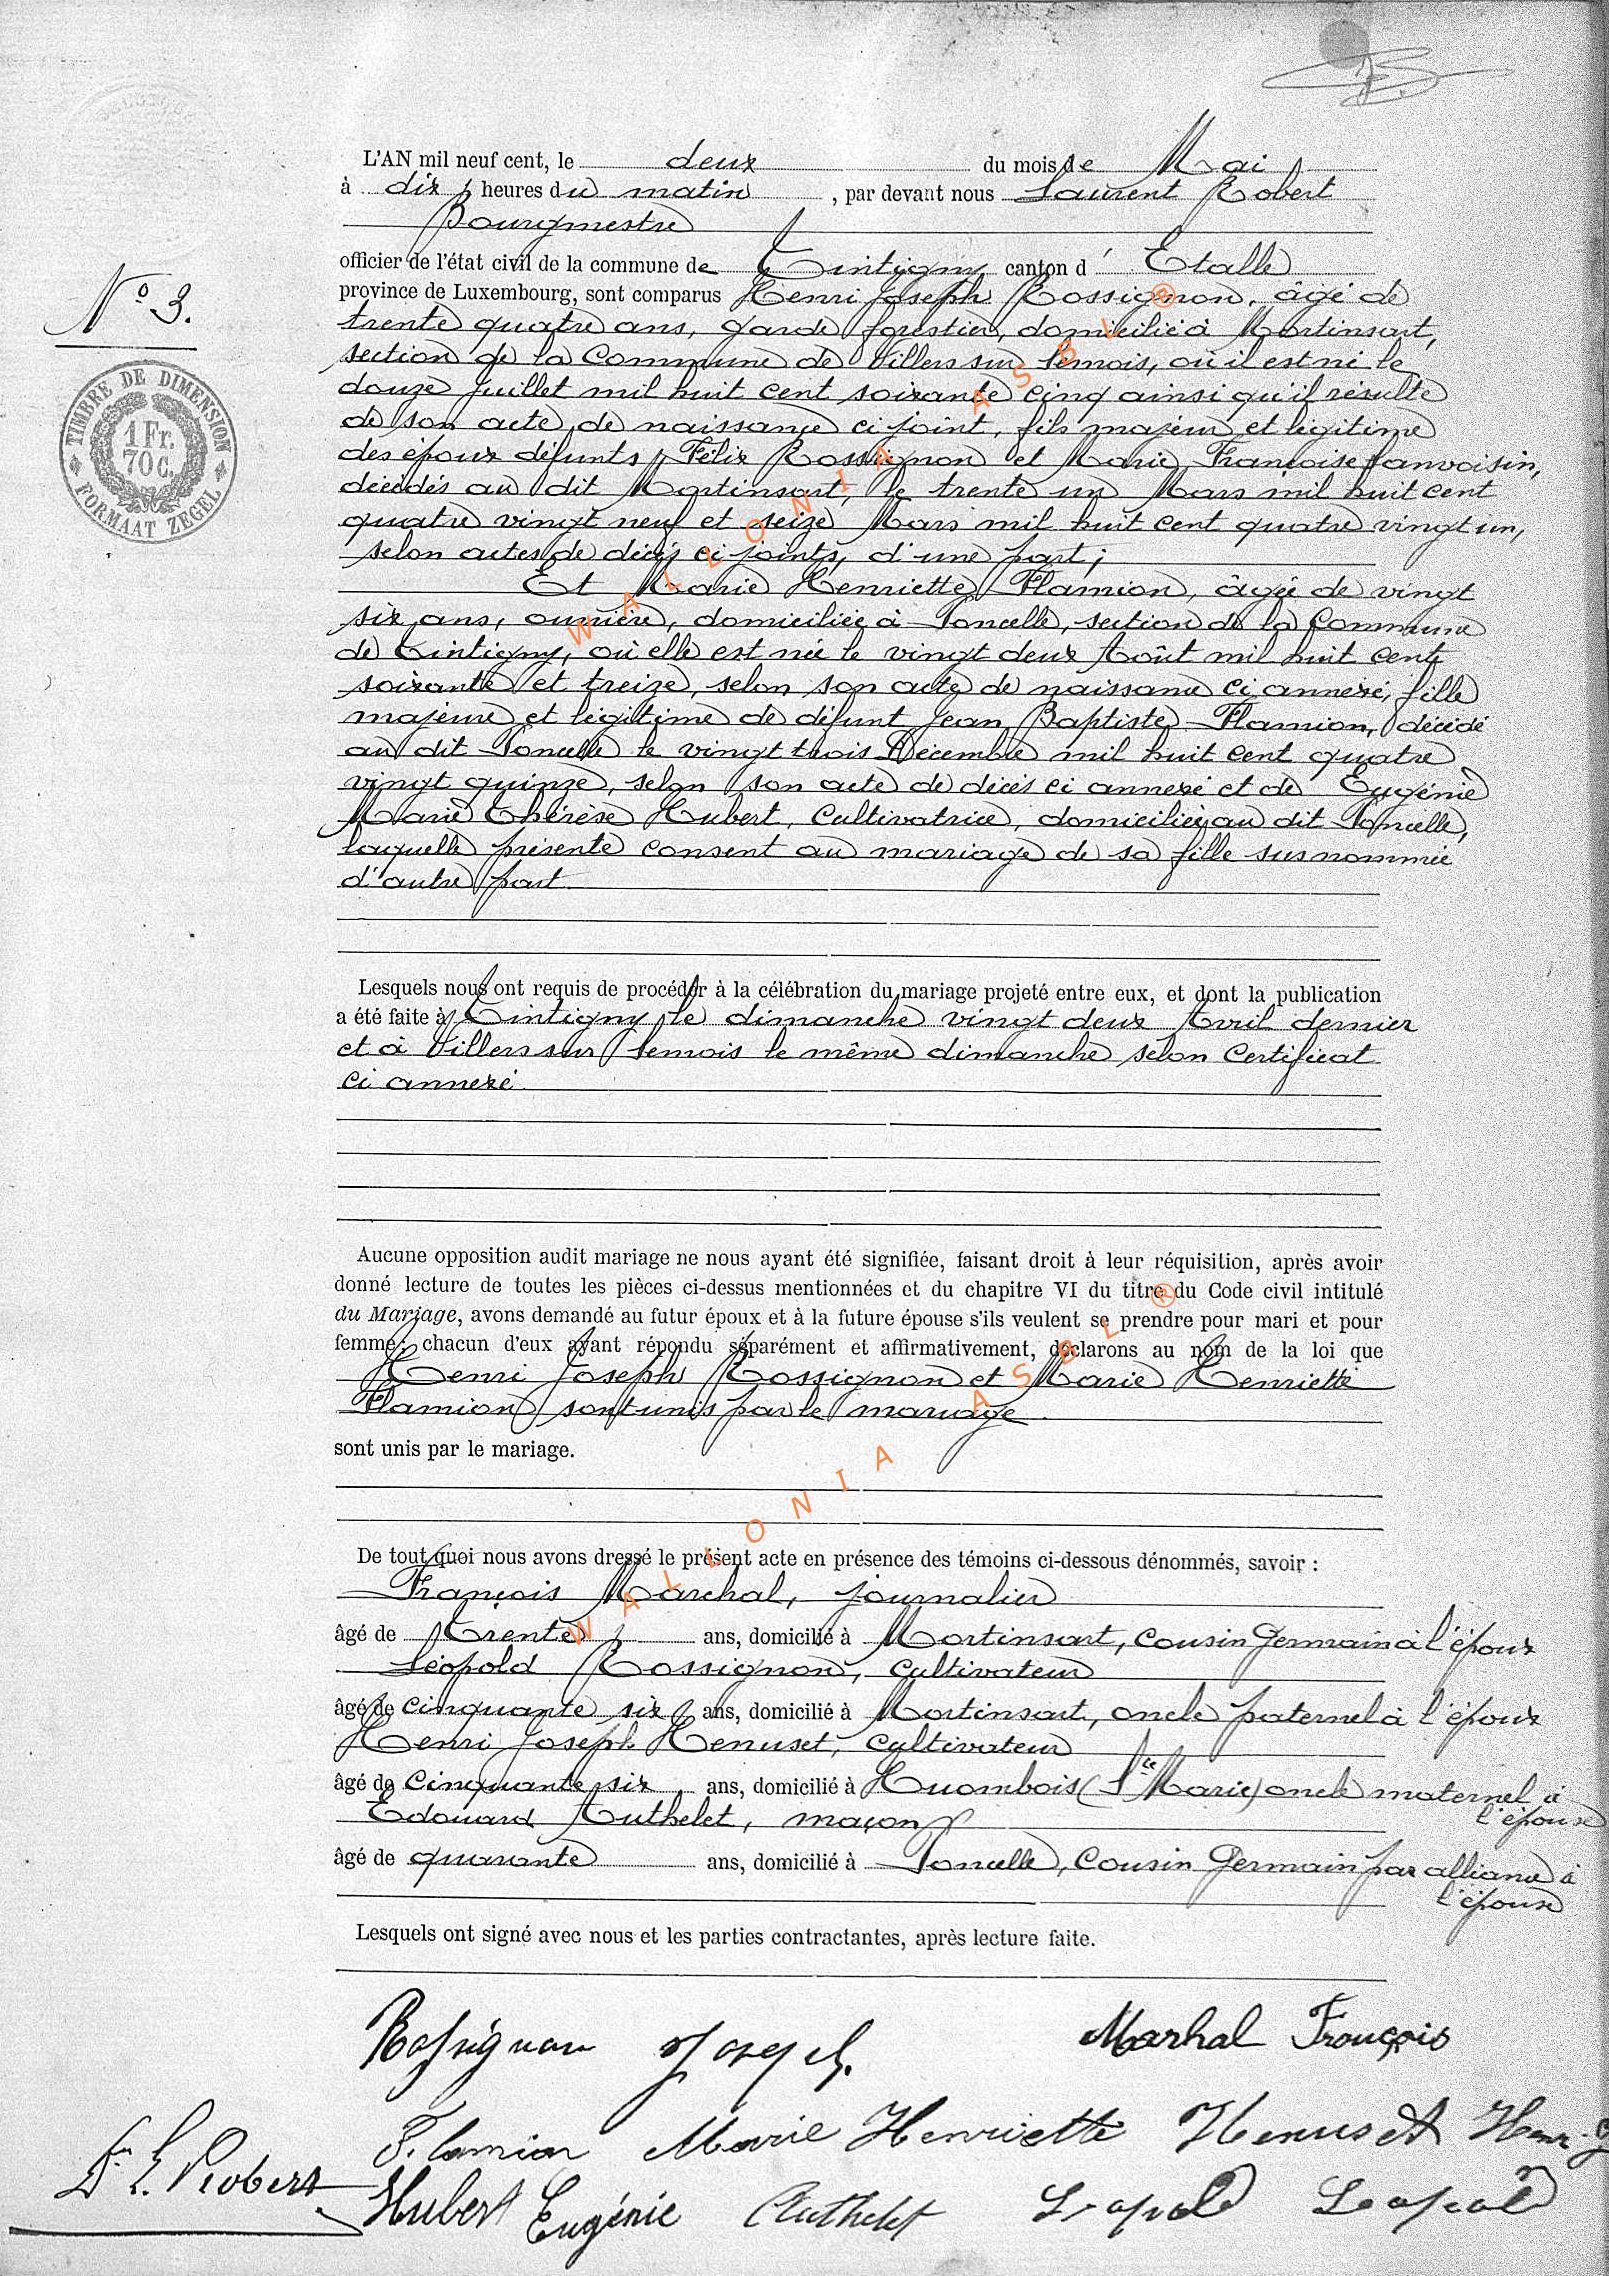 L'AN mil neuf cent, le deux du mois de Mai
à dix heures du matin, par devant nous Laurent Robert
Bourgmestre
officier de l'état civil de la commune de Tintigny canton d' Etalle
province de Luxembourg, sont comparus Henri Joseph Rossignon, âgé de
N° 3.
trente quatre ans, garde forestier, domicilié à Mortinsart,
section de la Commune de Villers sur Semois, où il est né le
douze Juillet mil huit cent soixante cinq ainsi qu'il résulte
TIMBRE DE DIMENSION
1 Fr.
70 C.
FORMAAT ZEGEL
de son acte de naissance ci joint, fils majeur et légitime
des époux défunts Félix Rossignon et Marie Françoise Janvoisin,
décédés au dit Mortinsart, le trente un Mars mil huit cent
quatre vingt neuf et seize Mars mil huit cent quatre vingt un,
selon actes de décès ci joints, d'une part;
Et Marie Henriette Flamion, âgée de vingt
six ans, ouvrière, domiciliée à Poncelle, section de la Commune
de Tintigny, où elle est née le vingt deux Août mil huit cent
soixante et treize, selon son acte de naissance ci annexé, fille
majeure et légitime de défunt Jean Baptiste Flamion, décédé
au dit Poncelle le vingt trois Décembre mil huit cent quatre
vingt quinze, selon son acte de décès ci annexé et de Eugénie
Marie Thérèse Hubert, Cultivatrice, domiciliée au dit Poncelle,
laquelle présente consent au mariage de sa fille susnommée
d'autre part
Lesquels nous ont requis de procéder à la célébration du mariage projeté entre eux, et dont la publication
a été faite à Tintigny le dimanche vingt deux Avril dernier
et à Villers sur Semois le même dimanche selon Certificat
ci annexé
Aucune opposition audit mariage ne nous ayant été signifiée, faisant droit à leur réquisition, après avoir
donné lecture de toutes les pièces ci-dessus mentionnées et du chapitre VI du titre du Code civil intitulé
du Mariage, avons demandé au futur époux et à la future épouse s'ils veulent se prendre pour mari et pour
femme; chacun d'eux ayant répondu séparément et affirmativement, déclarons au nom de la loi que
Henri Joseph Rossignon et Marie Henriette
Flamion sont unis par le mariage.
sont unis par le mariage.
De tout quoi nous avons dressé le présent acte en présence des témoins ci-dessous dénommés, savoir :
François Marchal, journalier
âgé de trente ans, domicilié à Mortinsart, cousin Germain à l'époux
Léopold Rossignon, cultivateur
âgé de cinquante six ans, domicilié à Mortinsart, oncle paternel à l'époux
Henri Joseph Henuset, cultivateur
âgé de cinquante six ans, domicilié à Huombois (Ste Marie) oncle maternel à
l'épouse
Edouard Authelet, maçon
âgé de quarante ans, domicilié à Poncelle, cousin Germain par alliance à
l'épouse
Lesquels ont signé avec nous et les parties contractantes, après lecture faite.
Rossignon Joseph. Marhal François
Flamion Marie Henriette Henuset Henri-J
Dr L. Robert
Hubert Eugénie Authelet Léopold Léopold
WALLONIA ASBL ®
WALLONIA ASBL ®